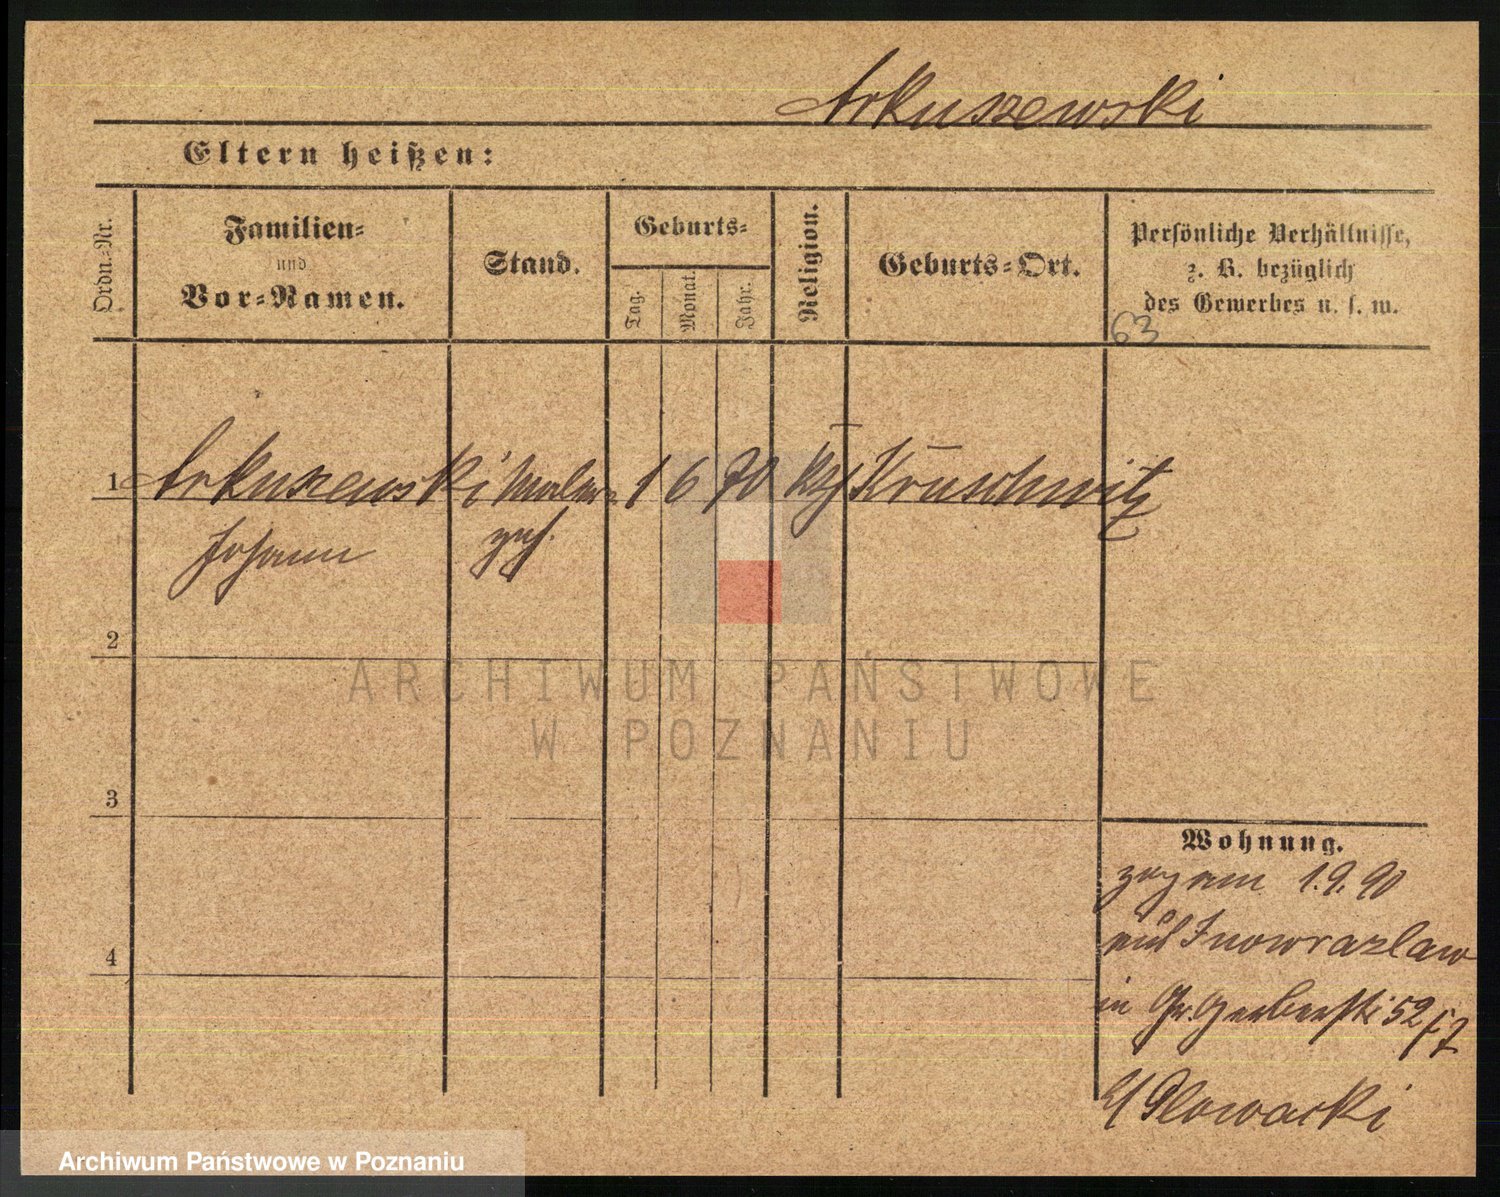 Arkuszewski
Eltern heißen:
Ordn.-Nr.
Familien-
und
Vor-Namen.
Stand.
Geburts-
Tag.
Monat.
Jahr.
Religion.
Geburts-Ort.
Persönliche Verhältnisse,
z. B. bezüglich
des Gewerbes u. s. w.
63
1 Arkuszewski Maler 1 6 70 Kruschwitz
Johann
2
ARCHIWUM PAŃSTWOWE
W POZNANIU
3
Wohnung.
zog am 1.9.90
aus Inowrazlaw
4
in Gr. Gerberstr 52
Slowacki
Archiwum Państwowe w Poznaniu